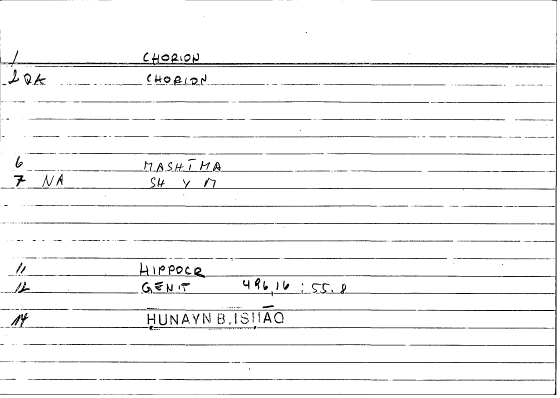 1 CHORION
2 QK CHORION
6 MASHĪMA
7 NA SH Y M
11 HIPPOCR
12 GENIT 496,16 : 55.8
14 ḤUNAYN B.ISḤĀQ